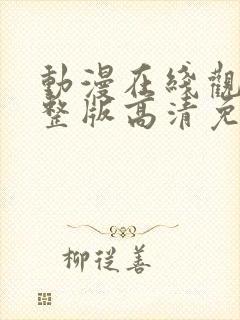 動漫在綫觀
整版高清免
柳從善